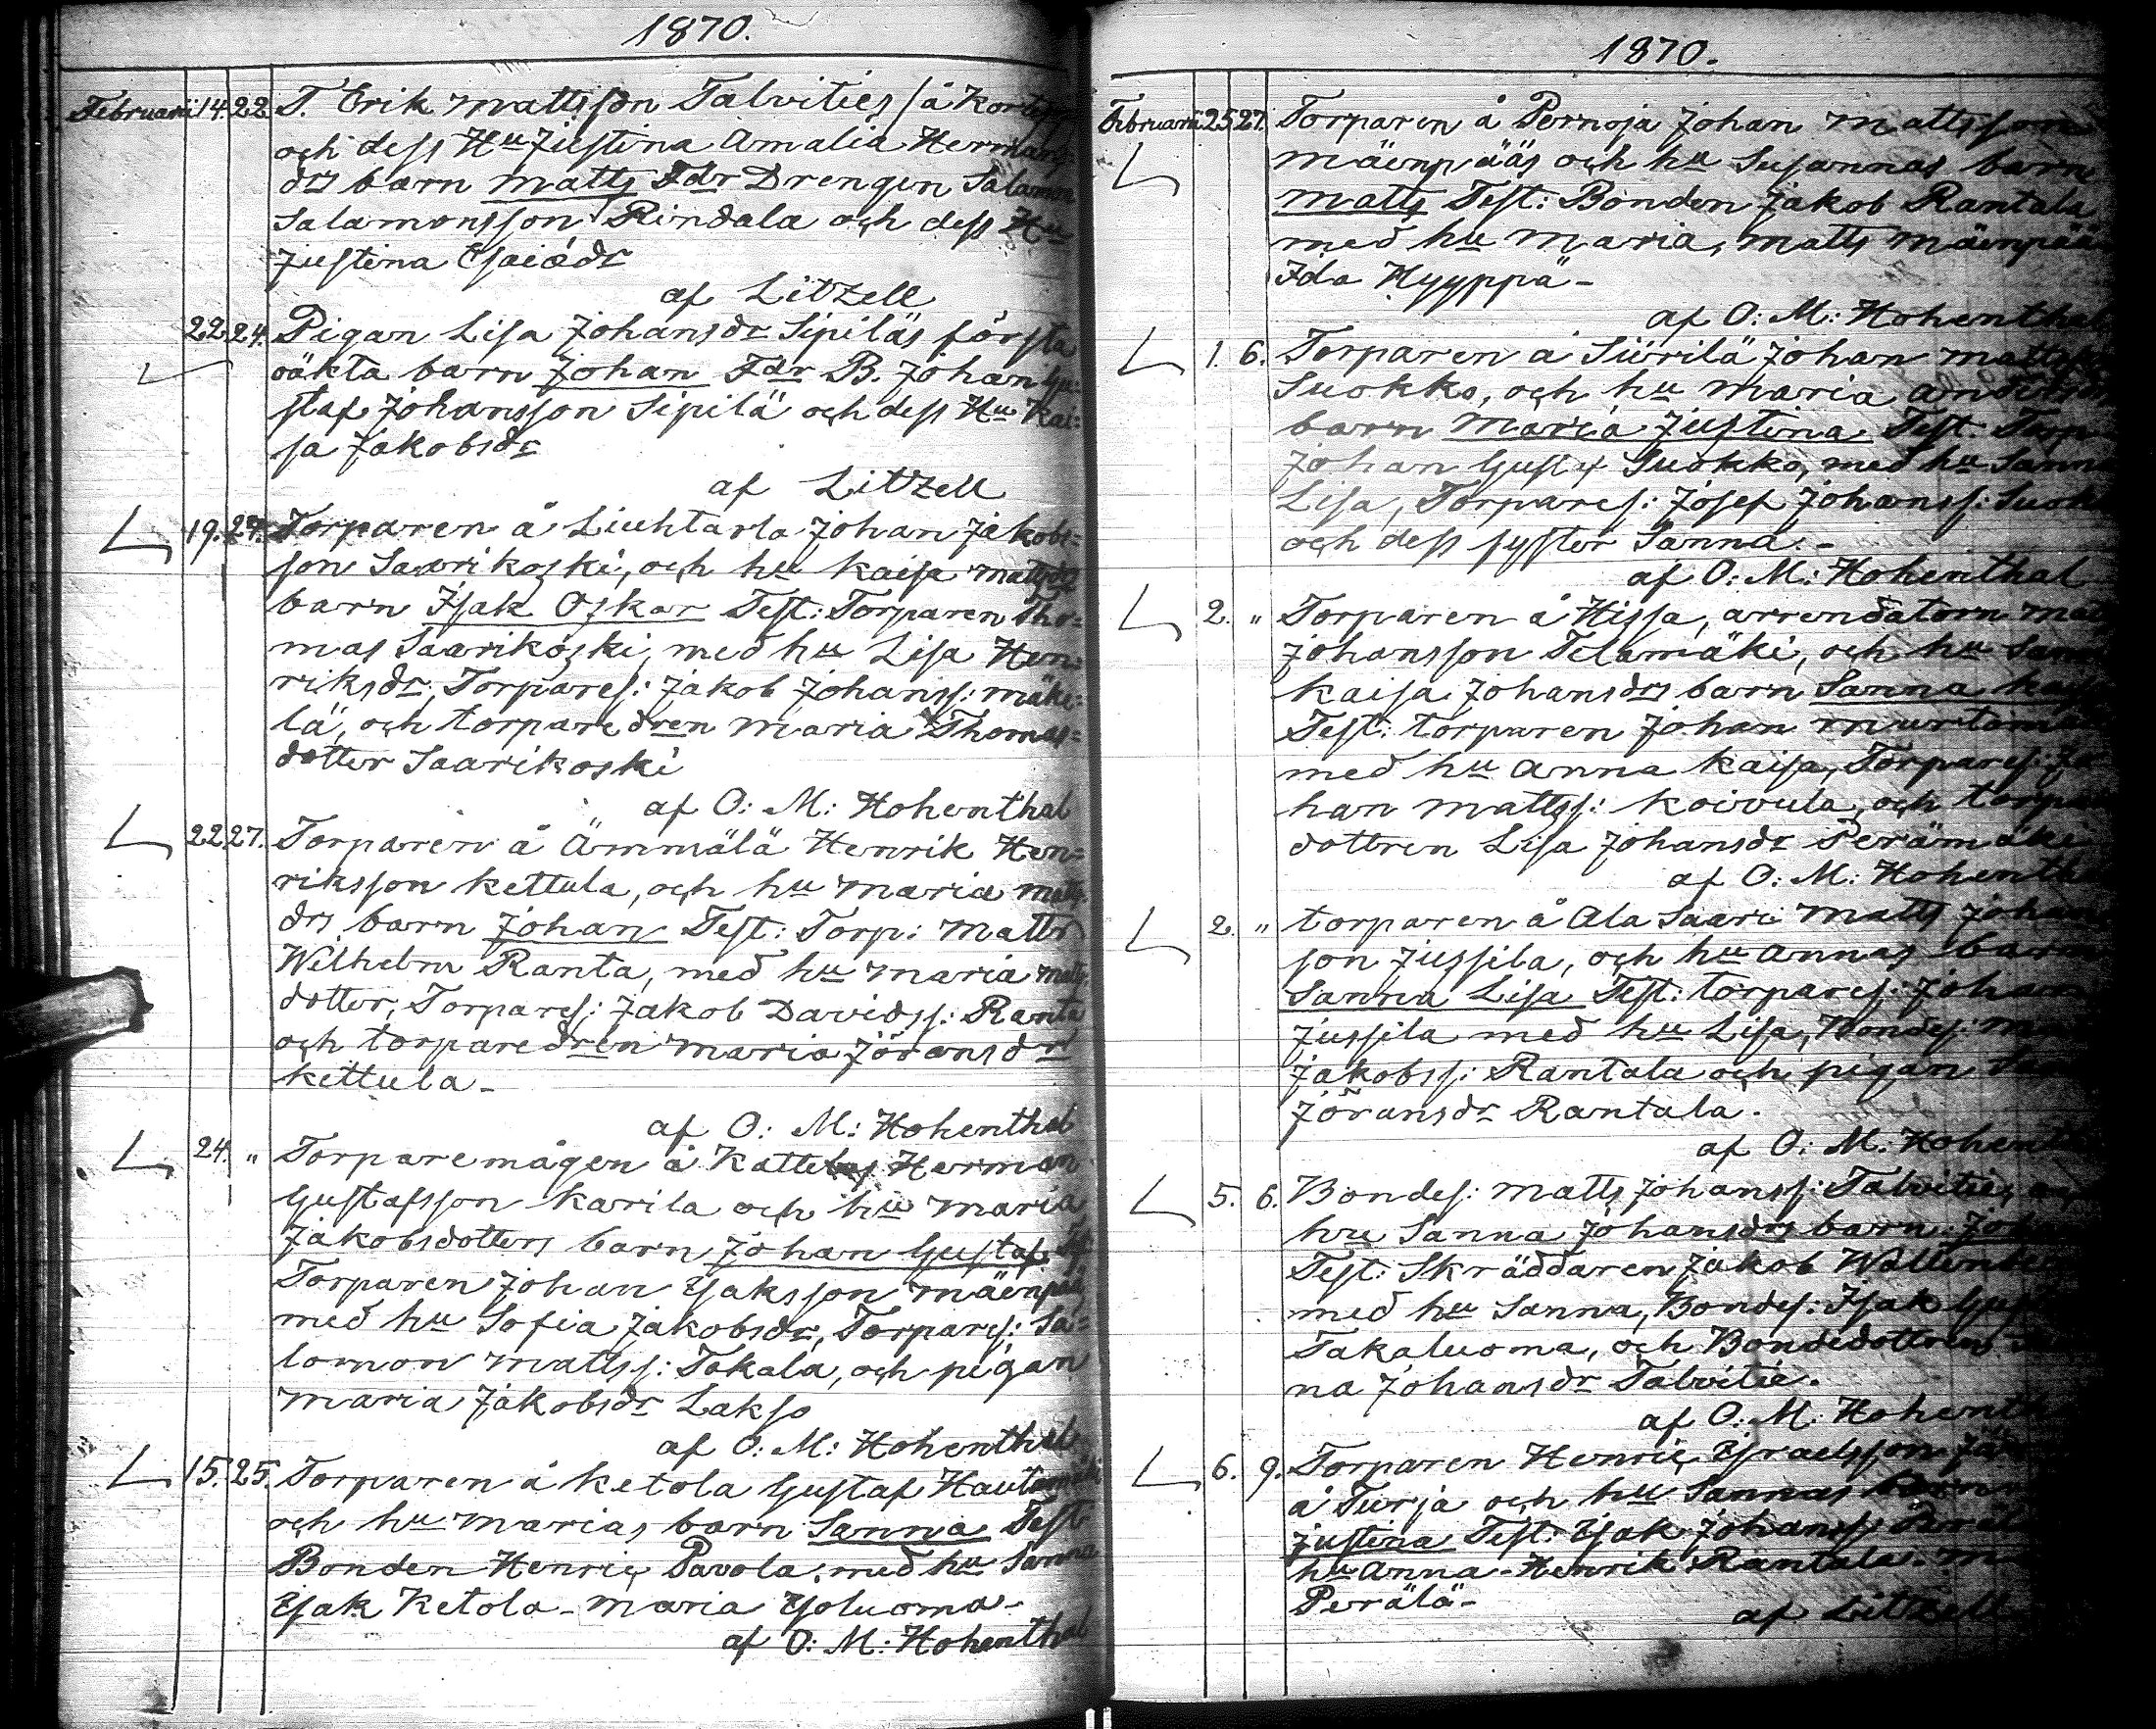 1870.
Februarii 14. 22. T. Erik Mattsson Talvities (å Kortesj
och dess Hu Justina Amalia Hermans
drs barn Matts Fdr Drengen Salamon
Salamonsson Rindala och dess Hu
Justina Esaiædr
af Litzell
22. 24. Pigan Lisa Johansdr Sipiläs första
oäkta barn Johan Fdr B. Johan Gu=
staf Johansson Sipilä och dess Hu Kai=
sa Jakobsdr
af Litzell
19. 27. Torparen å Liuhtarla Johan Jakobs=
son Saarikoski, och hu Kaisa Mattsdrs
barn Isak Oskar Test: Torparen Tho=
mas Saarikoski, med hu Lisa Hen=
riksdr, Torpares: Jakob Johanss: Mäke=
lä, och torparedren Maria Thomas=
dotter Saarikoski
af O: M: Hohenthal
22. 27. Torparen å Ämmälä Henrik Hen=
riksson Kettula, och hu Maria Matts
drs barn Johan Test: Torp: Matts
Wilhelm Ranta, med hu Maria Matts
dotter, Torpares: Jakob Davidss: Ranta
och torparedren Maria Göransdr
Kettula-
af O: M: Hohenthal
24. " Torparemågen å Herman
Gustafsson Karila och hu Maria
Jakobsdotters barn Johan Gustaf
Torparen Johan Isaksson Mäenpää
med hu Sofia Jakobsdr, Torpares: Sa=
lomon Mattss: Tokala, och pigan
Maria Jakobsdr Lakso
af O: M: Hohenthal
15. 25. Torparen å Ketola Gustaf Hautamäki
och hu Marias barn Sanna Test
Bonden Henric Pavola, med hu Sanna
Isak Ketola- Maria Yoluoma-
af O: M: Hohenthal
1870.
Februarii 25 27. Torparen å Pernoja Johan Mattsson
Mäenpääs och hu Susannas barn
Matts Test: Bonden Jakob Rantala
med hu Maria, Matts Mäenpää
Ida Hyyppä-
af O: M: Hohenthal
1. 6. Torparen å Siirilä Johan Matts
Suokko, och hu Maria Anders
barn Maria Justina Test. Torp
Johan Gustaf Suokko, med hu Sanna
Lisa, Torpares: Josef Johanss: Suok
och dess syster Sanna.-
af O: M: Hohenthal
2. " Torparen å Hissa, arrendatorn Mat
Johansson Telamäki, och hu San
Kaisa Johansdrs barn Sanna Kaisa
Test: torparen Johan Murtom
med hu Anna Kaisa, Torpares: Jo
han Mattss: Koivula, och torpar
dottren Lisa Johansdr Perämäki
af O: M: Hohentha
2. " torparen å Ala Saari Matts Johan
son Jussila, och hu Annas barn
Sanna Lisa Test: torpares: Johan
Jussila med hu Lisa, Bondes: M
Jakobss: Rantala och pigan
Göransdr Rantala.
af O: M: Hohent
5. 6. Bondes: Matts Johanss: Talvities
hu Sanna Johansdrs barn Joh
Test: Skräddaren Jakob
med hu Sanna, Bondes: Isak Gust
Takaluoma, och Bondedottren
na Johansdr Talvitie.
af O: M: Hohenth
6. 9. Torparen Henric Israelsson
å Turja och hu Sannas barn
Justina Test: Isak Johanss
hu Anna- Henrik Rantala. M
Perälä-
af Litzell